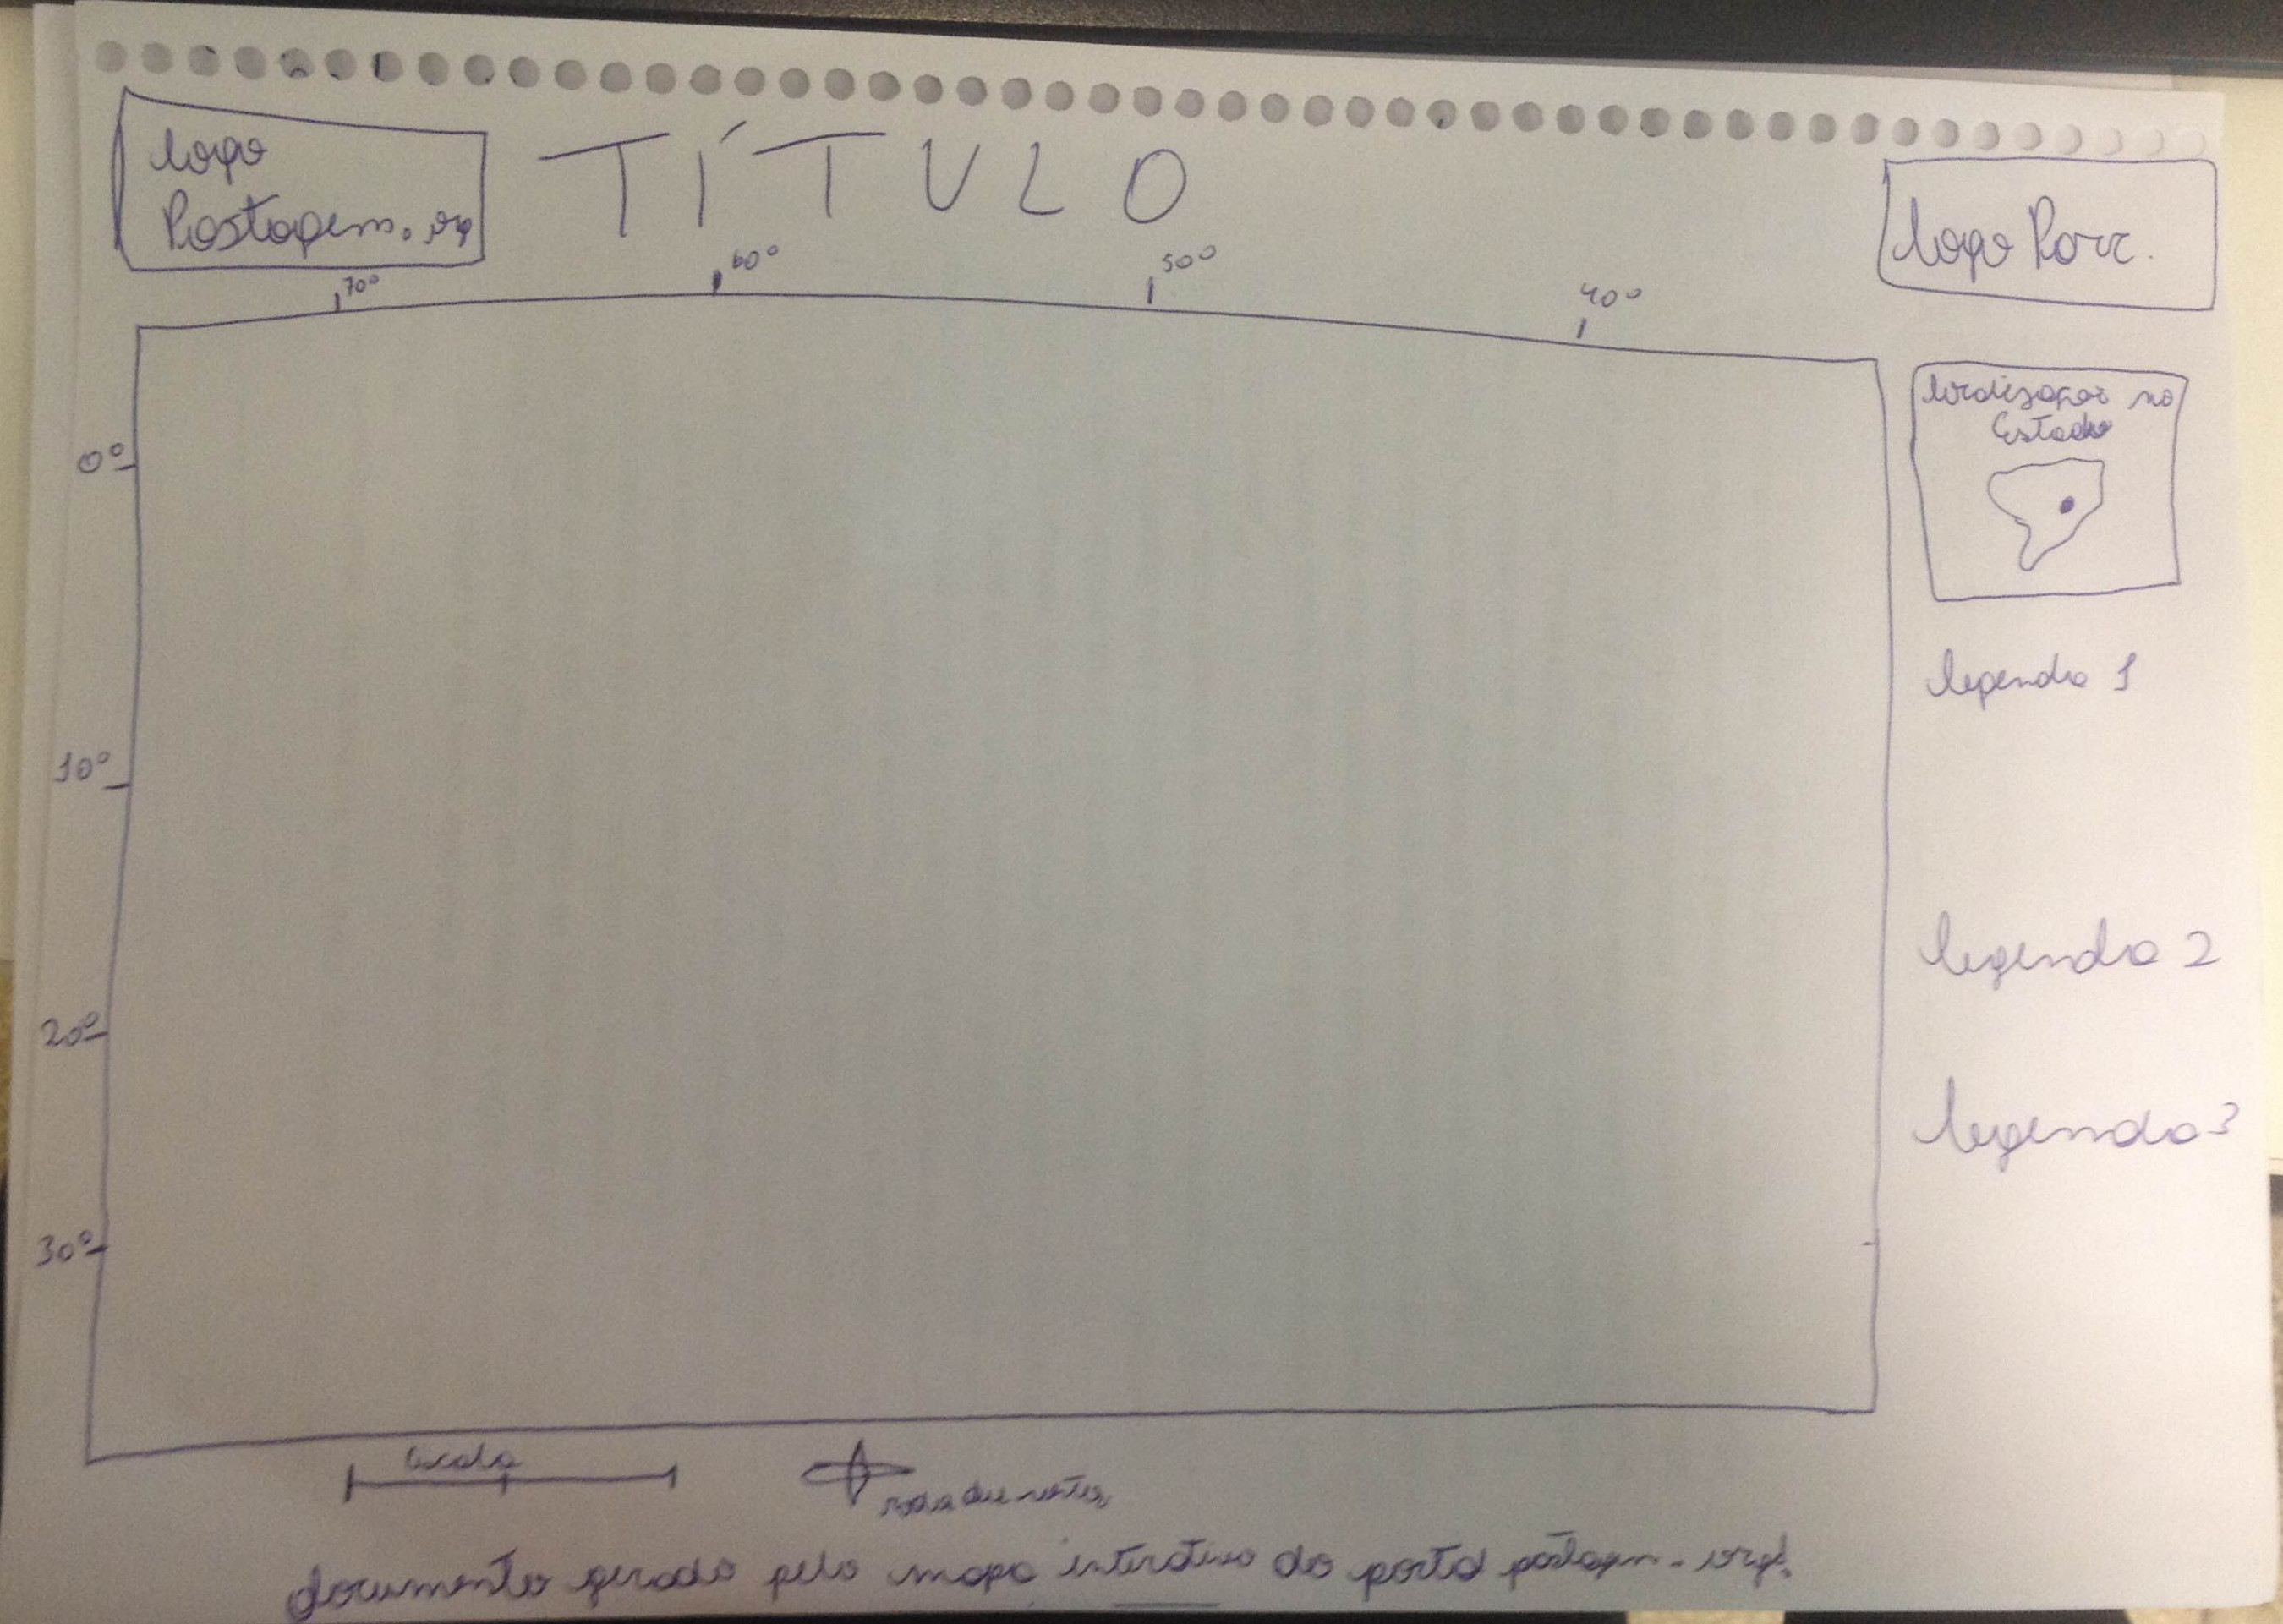 logo
Pastagem.org
TÍTULO
logo Parc.
70º
60º
50º
40º
0º
10º
20º
30º
localização no
Estado
legenda 1
legenda 2
legenda 3
Escala
rosa dos ventos
documento gerado pelo mapa interativo do portal pastagem.org.